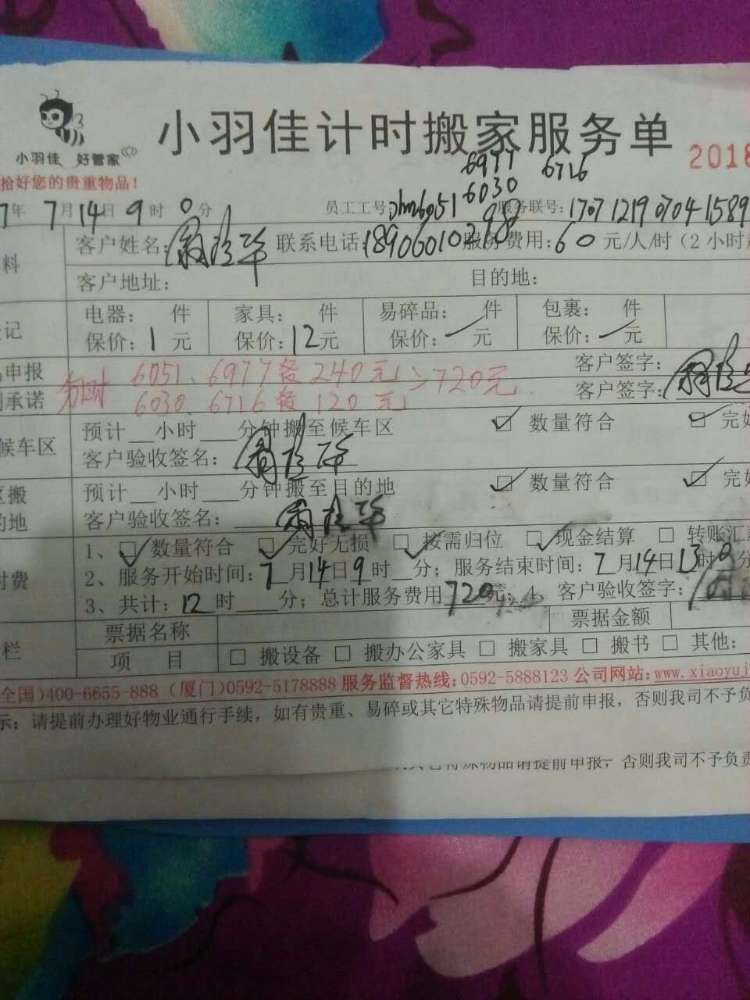 小羽佳计时搬家服务单
小羽佳 好管家
2018
拾好您的贵重物品！
6977 6716
6030
7年 7月14日 9时 0分 员工工号: 6051 服务联号: 1707121907041589
客户姓名: 联系电话: 服务费用: 60 元/人/时（2小时
客户地址: 目的地:
电器: 件 家具: 件 易碎品: 件 包裹: 件
保价: 1 元 保价: 12元 保价: 元 保价: 元
申报 6051、6977各240元 客户签字:
承诺 6030、6716各120元 720元 客户签字:
候车区 预计__小时___分钟搬至候车区 数量符合 完好
客户验收签名:
搬 预计__小时___分钟搬至目的地 数量符合 完好
的地 客户验收签名:
1、 数量符合 完好无损 按需归位 现金结算 转账汇
付费 2、服务开始时间: 7月14日9时__分; 服务结束时间: 7月14日13时0分
3、共计: 12 时___分; 总计服务费用 720元; 客户验收签字:
票据名称 票据金额
栏 项 目 搬设备 搬办公家具 搬家具 搬书 其他:
全国)400-6655-888 (厦门)0592-5178888 服务监督热线:0592-5888123 公司网站:www.xiaoyuj
示: 请提前办理好物业通行手续，如有贵重、易碎或其它特殊物品请提前申报，否则我司不予负
特殊物品请提前申报，否则我司不予负责